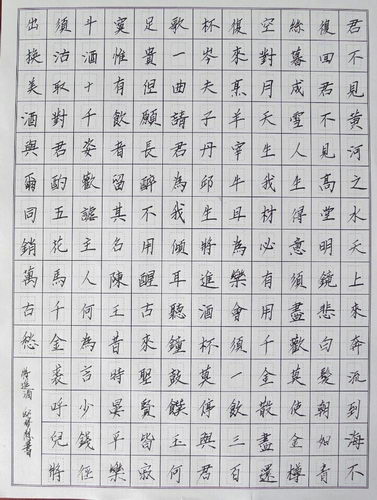 君不見黃河之水天上來奔流到海不
復回君不見高堂明鏡悲白髮朝如青
絲暮成雪人生得意須盡歡莫使金樽
空對月天生我材必有用千金散盡還
復來烹羊宰牛且為樂會須一飲三百
杯岑夫子丹邱生將進酒杯莫停與君
歌一曲請君為我傾耳聽鐘鼓饌玉何
足貴但願長醉不用醒古來聖賢皆寂
寞惟有飲者留其名陳王昔時宴平樂
斗酒十千恣歡謔主人何為言少錢徑
須沽取對君酌五花馬千金裘呼兒將
出換美酒與爾同銷萬古愁
將進酒